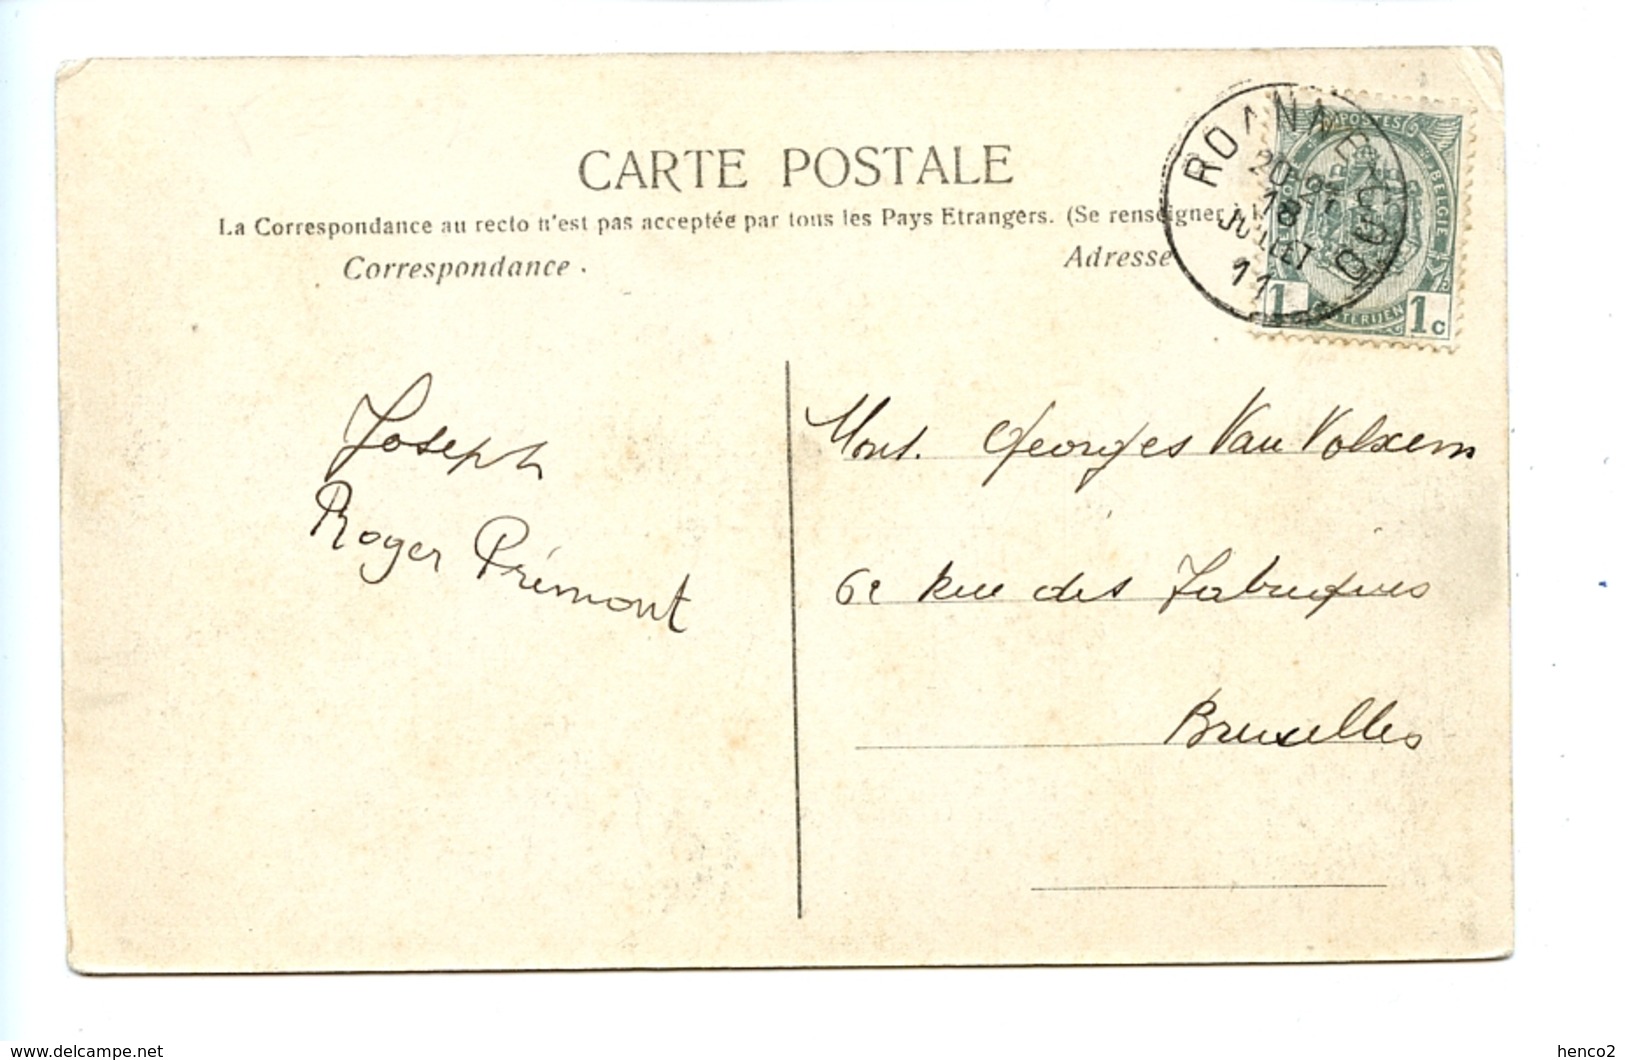 CARTE POSTALE
La Correspondance au recto n'est pas acceptée par tous les Pays Etrangers. (Se renseigner à
Correspondance.
Adresse
ROANNE-COO
20-21
18
JUILLET
11
POSTES
BELGIE
1
1c
Joseph
Roger Prémont
Mons. Georges Van Volxem
62 Rue des Fabriques
Bruxelles
www.delcampe.net
henco2